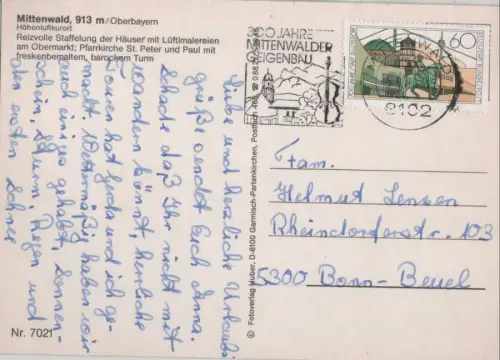 Mittenwald, 913 m/Oberbayern
Höhenluftkurort
Reizvolle Staffelung der Häuser mit Lüftlmalereien
am Obermarkt; Pfarrkirche St. Peter und Paul mit
freskenbemaltem, barockem Turm
Liebe und herzliche Urlaubs-
grüße sendet Euch Anna.
Schade daß Ihr nicht mit
wandern könnt, herrliche
Touren hat Gerda und ich ge-
macht. Wettermäßig haben wir
auch einiges gehabt, Sonnen-
schein, Sturm, Regen und
den ersten Schnee
Nr. 7021
© Fotoverlag Huber, D-8100 Garmisch-Partenkirchen, Postfach
300 JAHRE
MITTENWALDER
GEIGENBAU
8102
60
DEUTSCHE BUNDESPOST
Fam.
Helmut Lenzen
Rheindorferstr. 103
5300 Bonn-Beuel